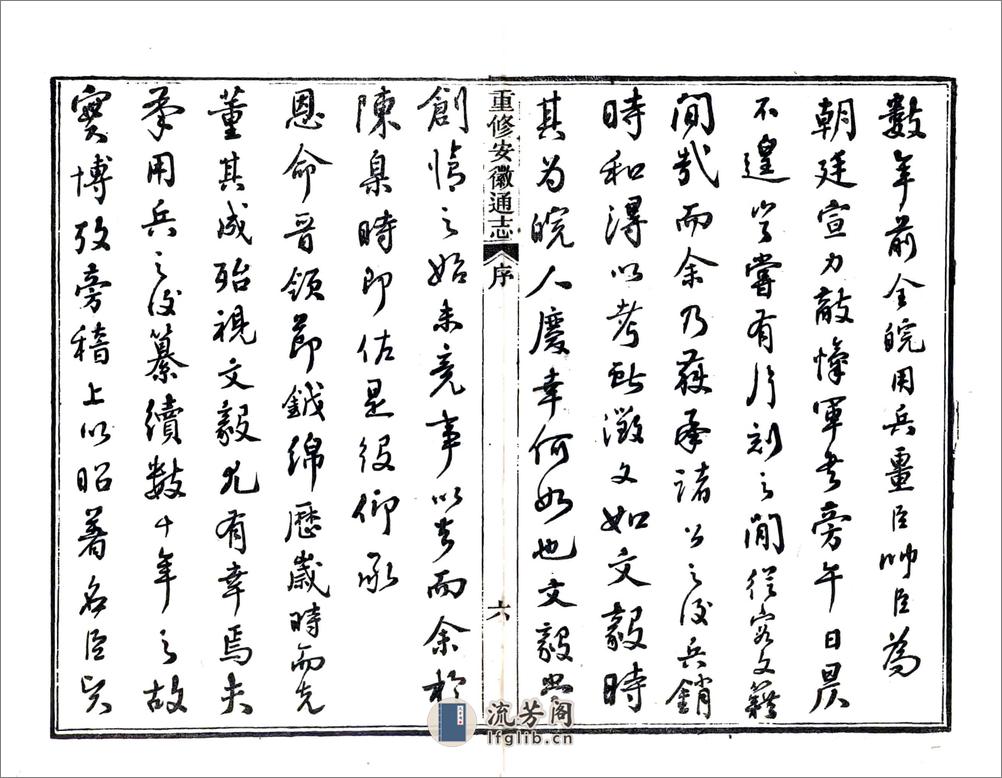 數年前全皖用兵畺臣帥臣為
朝廷宣力敵愾軍書旁午日昃
不遑豈嘗有片刻之閒從容文籍
間哉而余乃獲承諸公之後兵銷
時和得以考獻徵文如文毅時
其為皖人慶幸何如也文毅當
重修安徽通志 序 六
創修之始未竟事以去而余於
陳臬時即佐是役仰承
恩命晉領節鉞綿歷歲時而克
董其成殆視文毅尤有幸焉夫
承用兵之後纂續數十年之故
實博攷旁稽上以昭著名臣賢
流芳阁
lfglib.cn